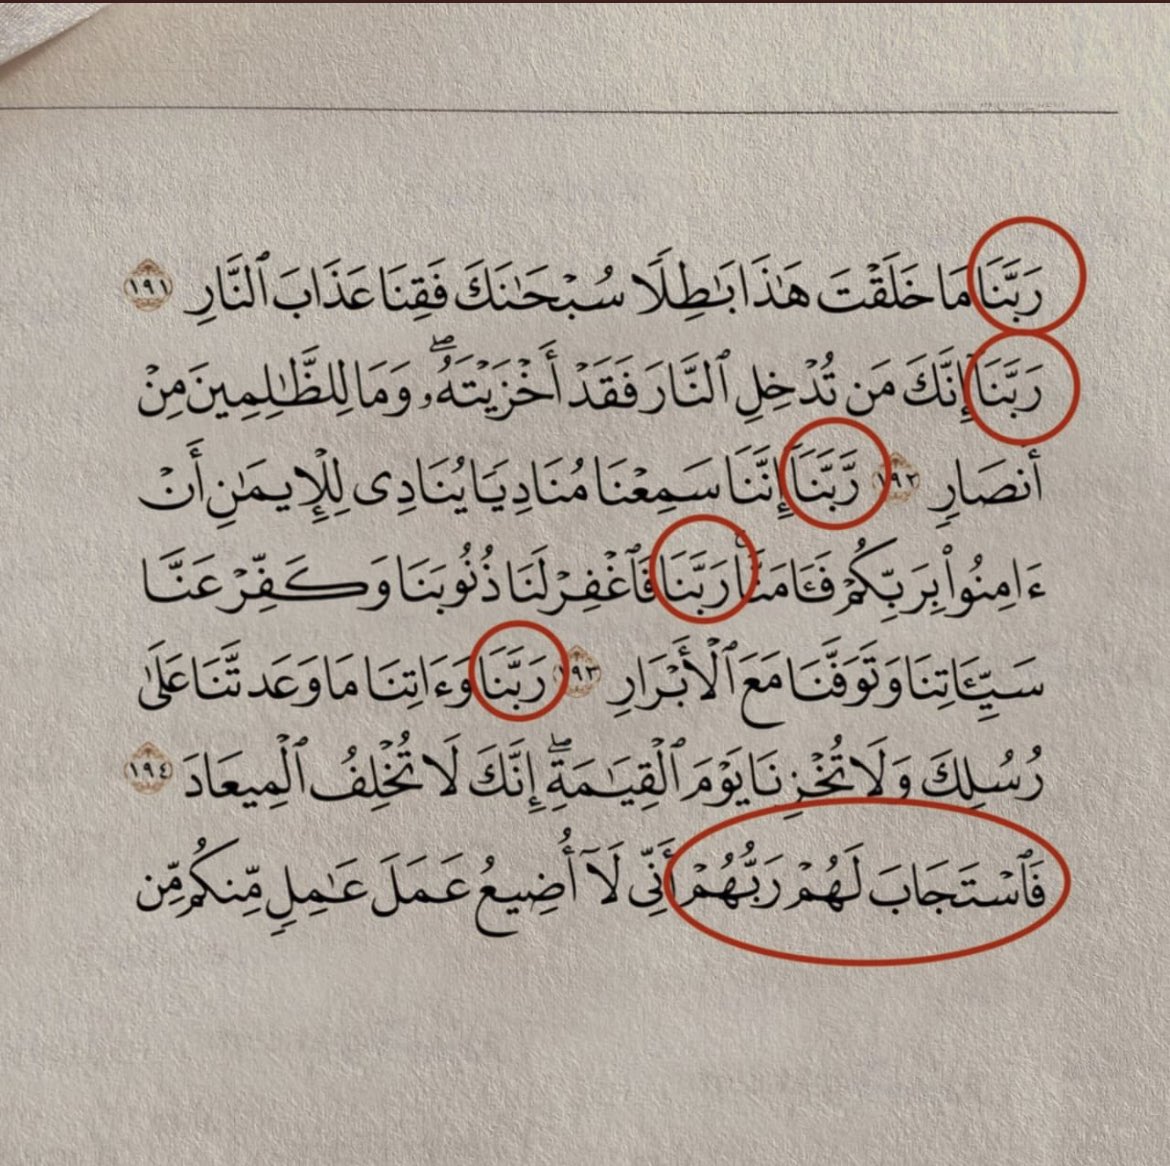 رَبَّنَا مَا خَلَقْتَ هَٰذَا بَٰطِلًا سُبْحَٰنَكَ فَقِنَا عَذَابَ ٱلنَّارِ ١٩١
رَبَّنَآ إِنَّكَ مَن تُدْخِلِ ٱلنَّارَ فَقَدْ أَخْزَيْتَهُۥۖ وَمَا لِلظَّٰلِمِينَ مِنْ
أَنصَارٍ ١٩٢ رَّبَّنَآ إِنَّنَا سَمِعْنَا مُنَادِيًا يُنَادِى لِلْإِيمَٰنِ أَنْ
ءَامِنُوا۟ بِرَبِّكُمْ فَـَٔامَنَّاۚ رَبَّنَا فَٱغْفِرْ لَنَا ذُنُوبَنَا وَكَفِّرْ عَنَّا
سَيِّـَٔاتِنَا وَتَوَفَّنَا مَعَ ٱلْأَبْرَارِ ١٩٣ رَبَّنَا وَءَاتِنَا مَا وَعَدتَّنَا عَلَىٰ
رُسُلِكَ وَلَا تُخْزِنَا يَوْمَ ٱلْقِيَٰمَةِۖ إِنَّكَ لَا تُخْلِفُ ٱلْمِيعَادَ ١٩٤
فَٱسْتَجَابَ لَهُمْ رَبُّهُمْ أَنِّى لَآ أُضِيعُ عَمَلَ عَٰمِلٍ مِّنكُم مِّن